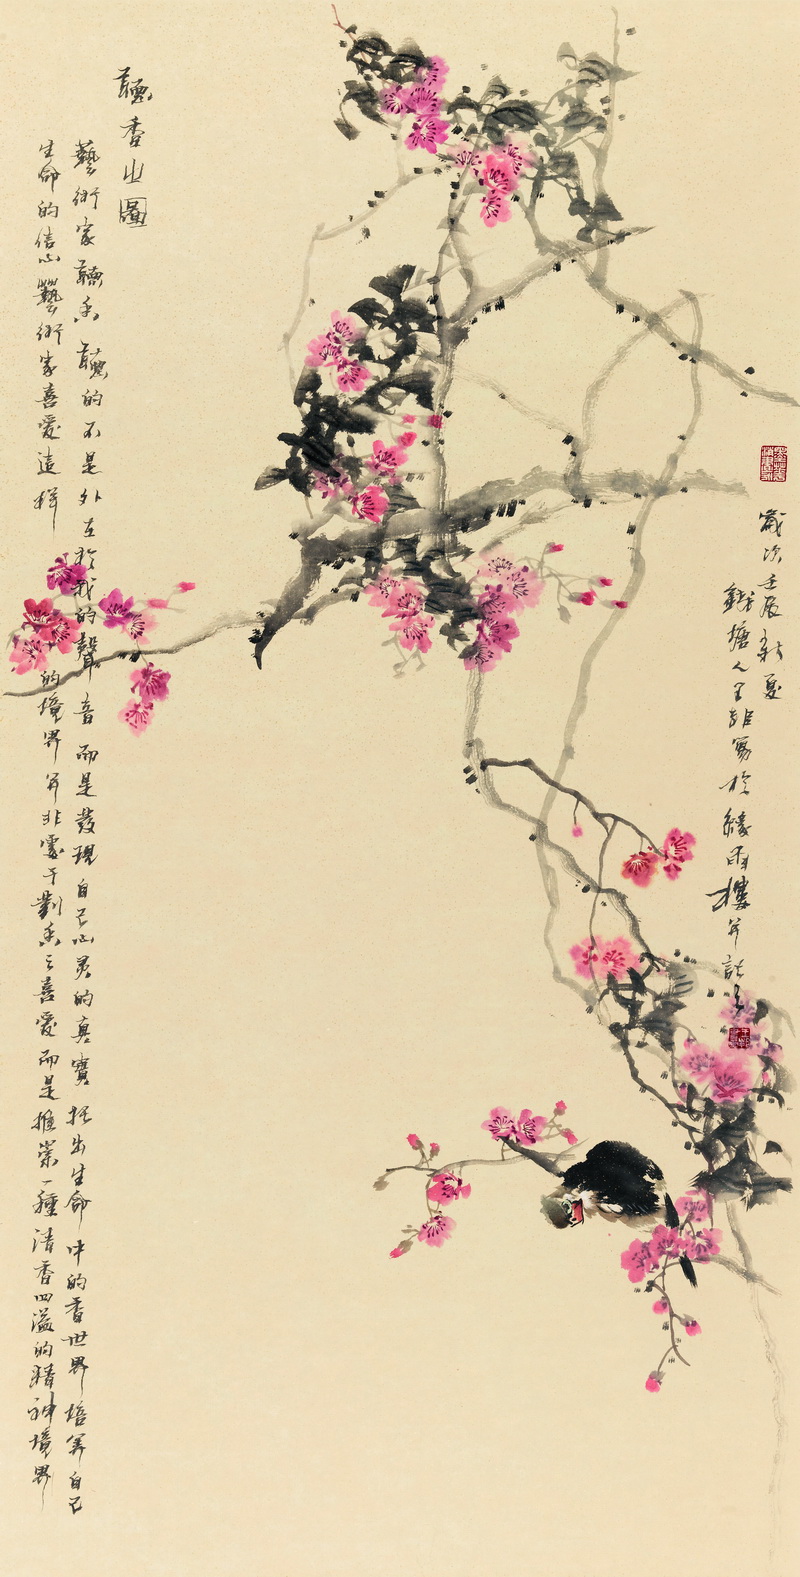 歲次壬辰新夏
錢塘人王非寫於緣雨樓并記之
聽香之圖
藝術家聽香聽的不是外在於我的聲音而是發現自己心灵的真實出生命中的香世界培养自己
生命的信心藝術家喜愛這樣的境界并非于對香之喜愛而是推崇一種清香四溢的精神境界